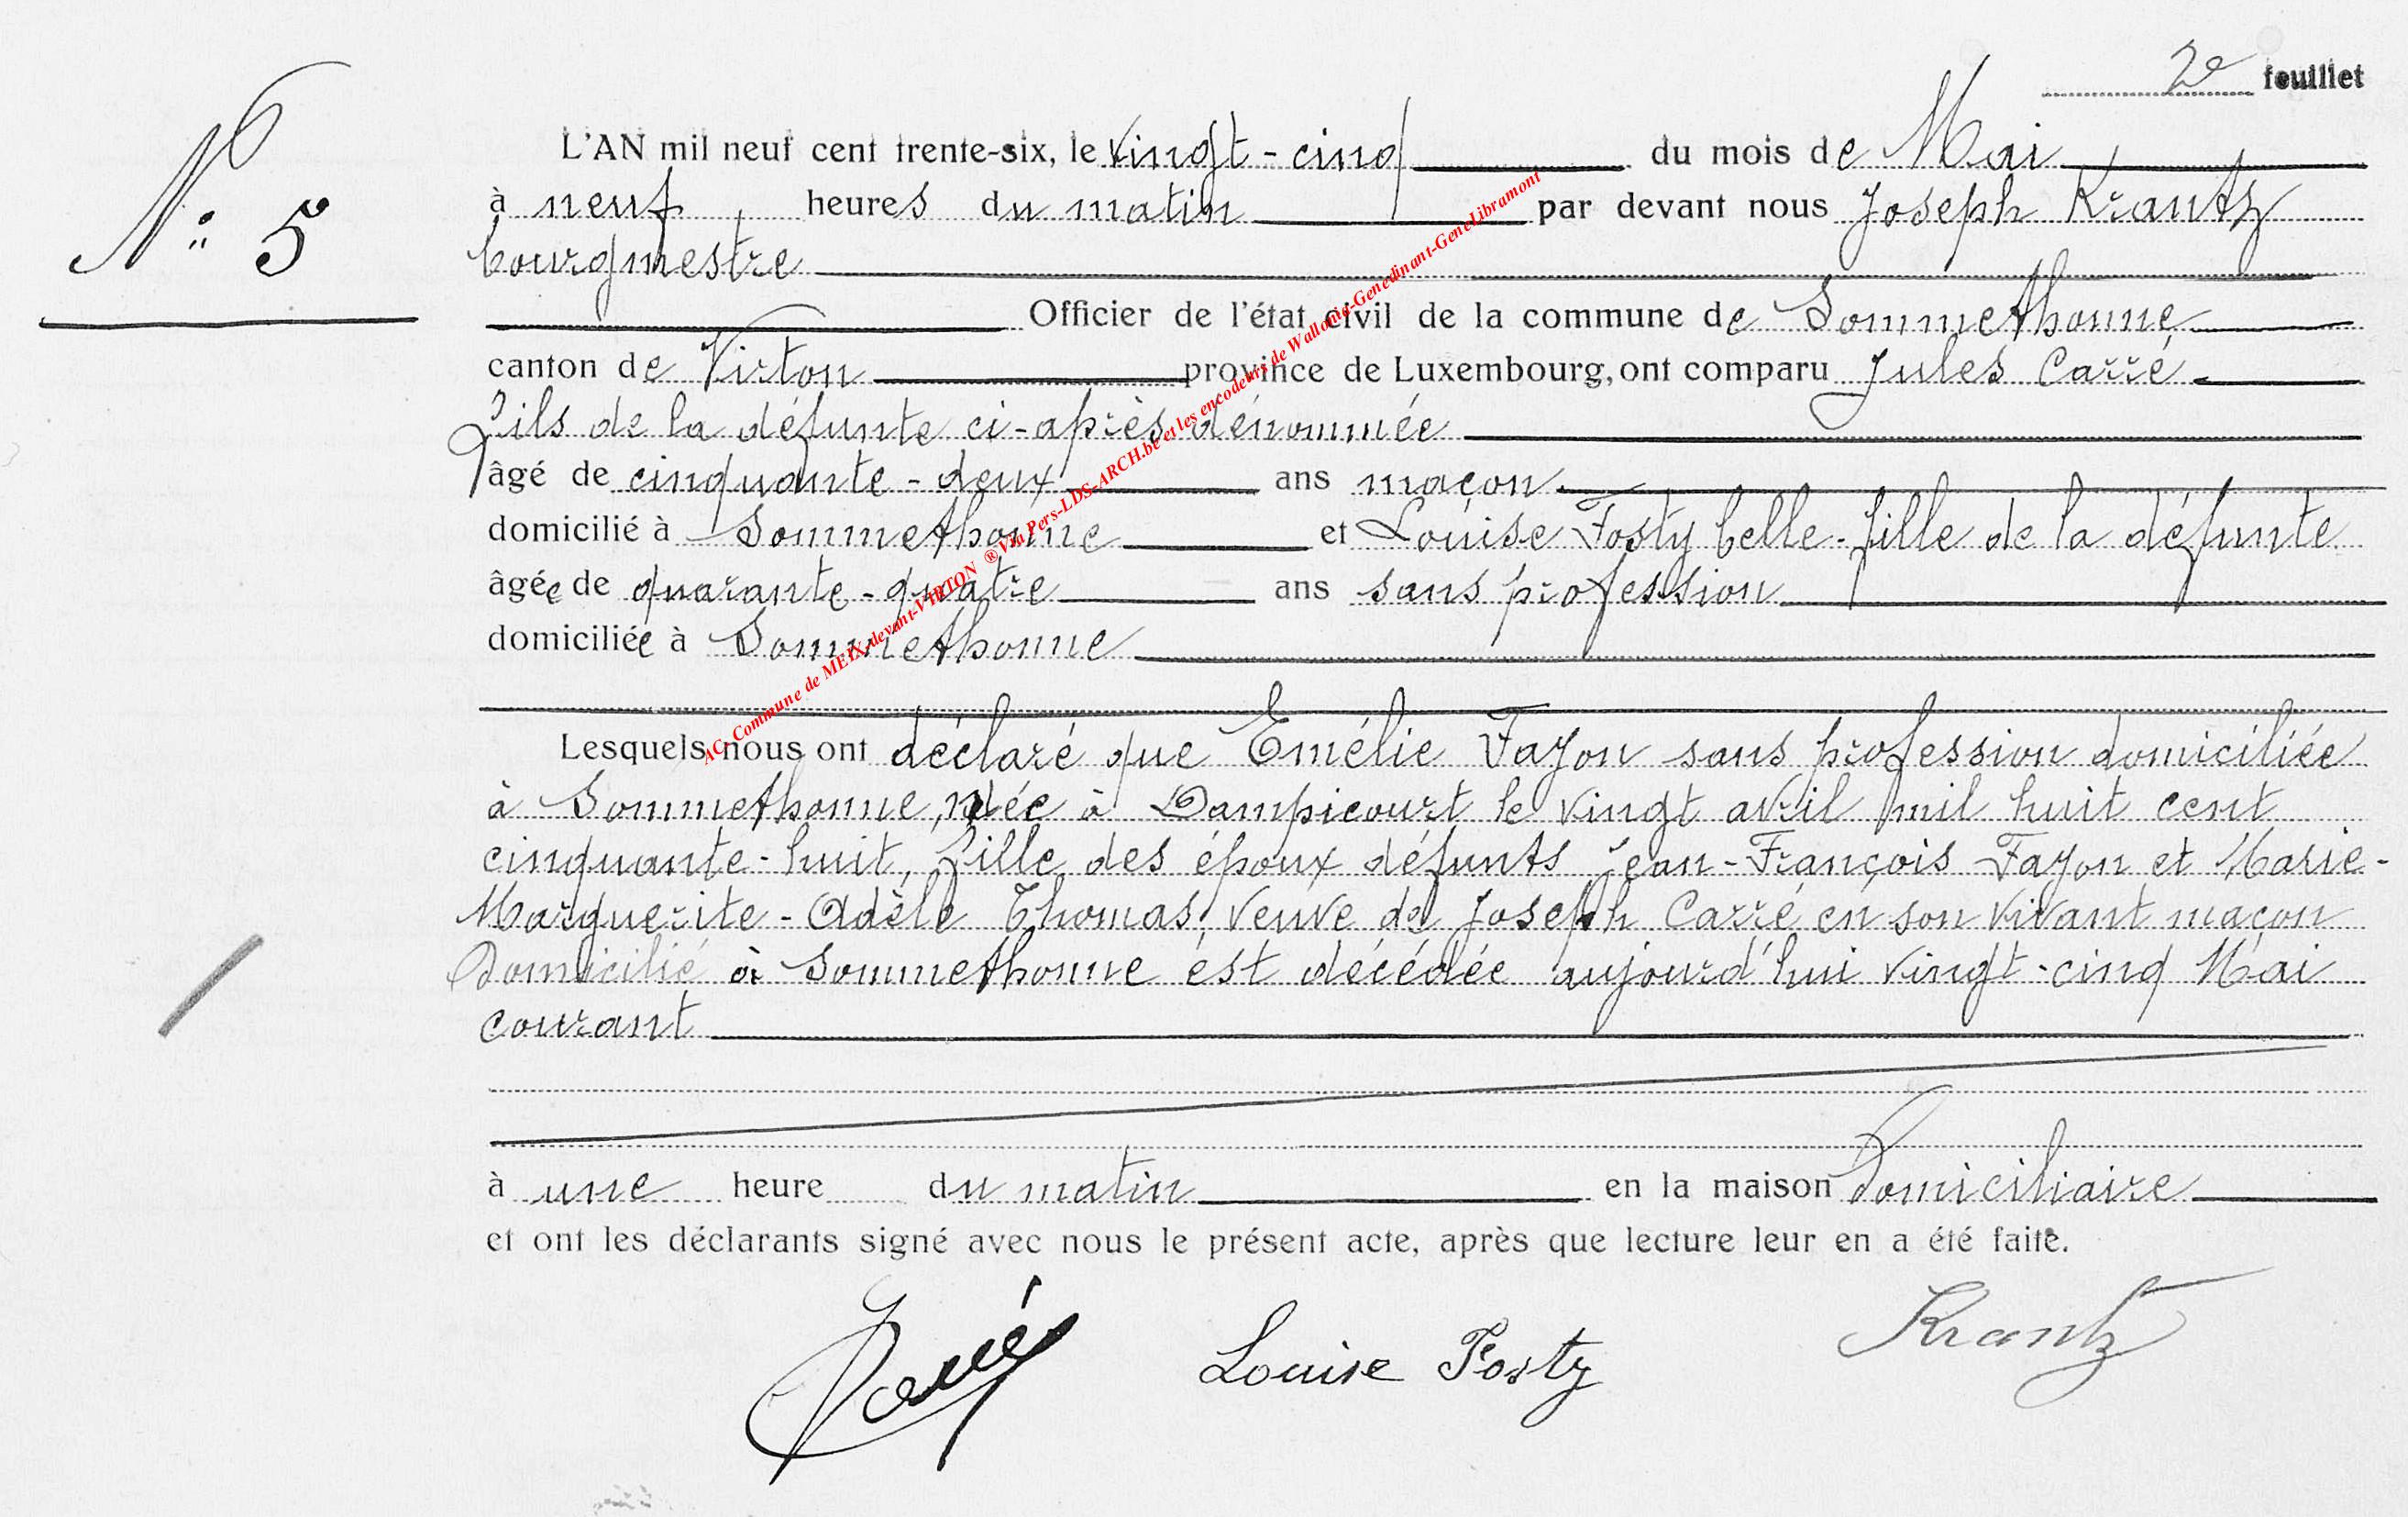 2e feuillet
N° 5
L'AN mil neuf cent trente-six, le vingt-cinq du mois de Mai
à neuf heures du matin par devant nous Joseph Krantz
bourgmestre
Officier de l'état civil de la commune de Sommethonne
canton de Virton province de Luxembourg, ont comparu Jules Carré
Fils de la défunte ci-après dénommée
âgé de cinquante-deux ans maçon
domicilié à Sommethonne et Louise Fosty belle-fille de la défunte
âgée de quarante-quatre ans sans profession
domiciliée à Sommethonne
AC. Commune de MEIX-devant-VIRTON ® Via Pers-LDS-ARCH.be et les encodeurs de Wallonia-Genedinant-GeneLibramont
Lesquels nous ont déclaré que Emélie Fayon sans profession domiciliée
à Sommethonne, née à Dampicourt le vingt avril mil huit cent
cinquante-huit, fille des époux défunts Jean-François Fayon et Marie-
Marguerite-Adèle Thomas, veuve de Joseph Carré en son vivant maçon
Domicilié à Sommethonne est décédée aujourd'hui vingt-cinq Mai
courant
à une heure du matin en la maison Domiciliaire
et ont les déclarants signé avec nous le présent acte, après que lecture leur en a été faite.
Carré Louise Fosty Krantz